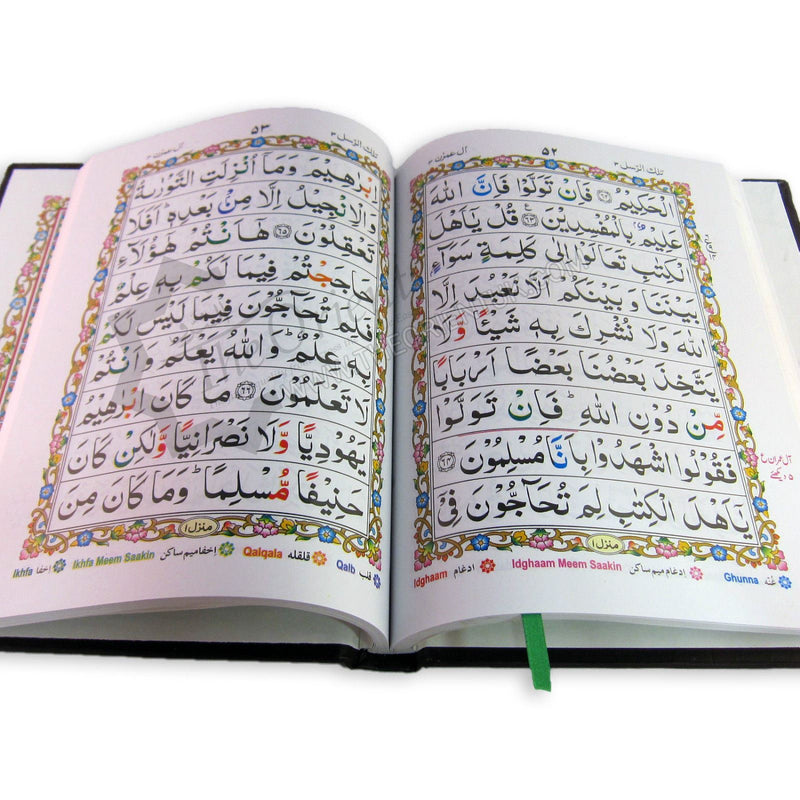 ٥٢
تلك الرسل ٣
آل عمرٰن ٣
الْحَكِيْمُ ﴿٦٢﴾ فَاِنْ تَوَلَّوْا فَاِنَّ اللّٰهَ
عَلِيْمٌۢ بِالْمُفْسِدِيْنَ ﴿٦٣﴾ قُلْ يٰۤاَهْلَ
الْكِتٰبِ تَعَالَوْا اِلٰى كَلِمَةٍ سَوَآءٍۭ
بَيْنَنَا وَبَيْنَكُمْ اَلَّا نَعْبُدَ اِلَّا
اللّٰهَ وَلَا نُشْرِكَ بِهٖ شَيْـًٔا وَّلَا
يَتَّخِذَ بَعْضُنَا بَعْضًا اَرْبَابًا
مِّنْ دُوْنِ اللّٰهِ ؕ فَاِنْ تَوَلَّوْا
فَقُوْلُوا اشْهَدُوْا بِاَنَّا مُسْلِمُوْنَ ﴿٦٤﴾
يٰۤاَهْلَ الْكِتٰبِ لِمَ تُحَآجُّوْنَ فِىْۤ
منزل ١
Idghaam ادغام Idghaam Meem Saakin ادغام میم ساکن Ghunna غنہ
٥٣
تلك الرسل ٣
آل عمرٰن ٣
اِبْرٰهِيْمَ وَمَاۤ اُنْزِلَتِ التَّوْرٰىةُ
وَالْاِنْجِيْلُ اِلَّا مِنْۢ بَعْدِهٖ ؕ اَفَلَا
تَعْقِلُوْنَ ﴿٦٥﴾ هٰۤاَنْتُمْ هٰۤؤُلَآءِ
حَاجَجْتُمْ فِيْمَا لَكُمْ بِهٖ عِلْمٌ
فَلِمَ تُحَآجُّوْنَ فِيْمَا لَيْسَ لَكُمْ
بِهٖ عِلْمٌ ؕ وَاللّٰهُ يَعْلَمُ وَاَنْتُمْ
لَا تَعْلَمُوْنَ ﴿٦٦﴾ مَا كَانَ اِبْرٰهِيْمُ
يَهُوْدِيًّا وَّلَا نَصْرَانِيًّا وَّلٰكِنْ كَانَ
حَنِيْفًا مُّسْلِمًا ؕ وَمَا كَانَ مِنَ
منزل ١
Ikhfa اخفا Ikhfa Meem Saakin اخفا میم ساکن Qalqala قلقله Qalb قلب